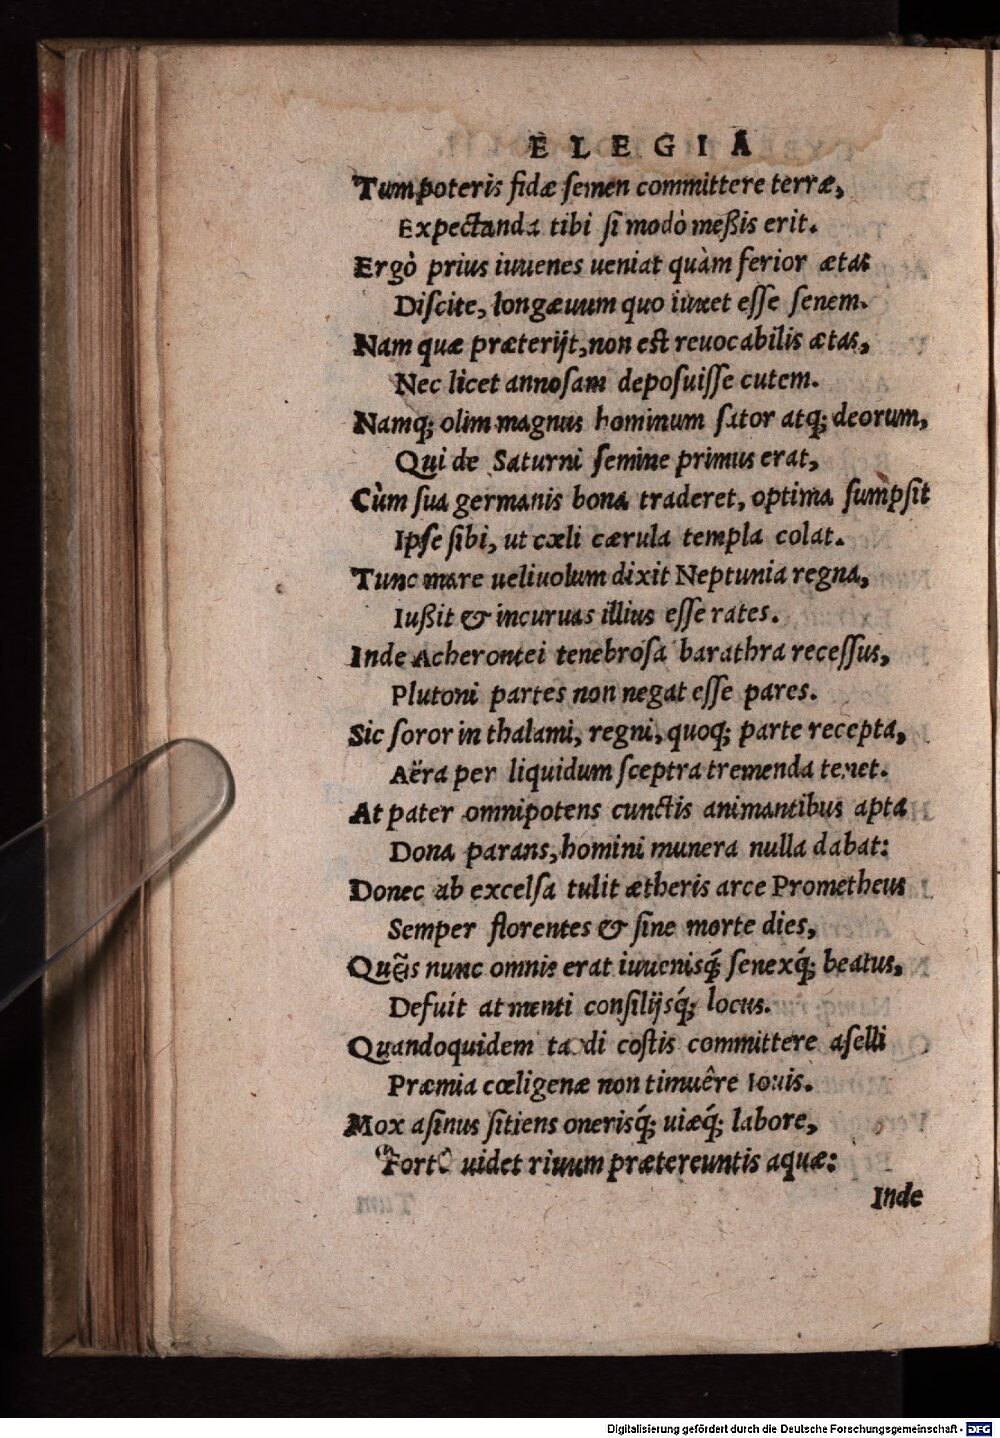 ELEGIA
Tum poteris fidæ ſemen committere terræ,
Expectanda tibi ſi modò meßis erit.
Ergò prius iuuenes ueniat quàm ferior ætas
Diſcite, longæuum quo iuuet eſſe ſenem.
Nam quæ præterijt, non eſt reuocabilis ætas,
Nec licet annoſam depoſuiſſe cutem.
Namq; olim magnus hominum ſator atq; deorum,
Qui de Saturni ſemine primus erat,
Cùm ſua germanis bona traderet, optima ſumpſit
Ipſe ſibi, ut cœli cærula templa colat.
Tunc mare ueliuolum dixit Neptunia regna,
Iußit & incuruas illius eſſe rates.
Inde Acherontei tenebroſa barathra receſſus,
Plutoni partes non negat eſſe pares.
Sic ſoror in thalami, regni, quoq; parte recepta,
Aëra per liquidum ſceptra tremenda tenet.
At pater omnipotens cunctis animantibus apta
Dona parans, homini munera nulla dabat:
Donec ab excelſa tulit ætheris arce Prometheus
Semper florentes & ſine morte dies,
nunc omnis erat iuuenisq́; ſenexq́; beatus,
Defuit at menti conſilijsq́; locus.
Quandoquidem tardi coſtis committere aſelli
Præmia cœligenæ non timuêre Iouis.
Mox aſinus ſitiens onerisq́; uiæq́; labore,
Fortè uidet riuum prætereuntis aquæ:
Inde
Digitalisierung gefördert durch die Deutsche Forschungsgemeinschaft - DFG